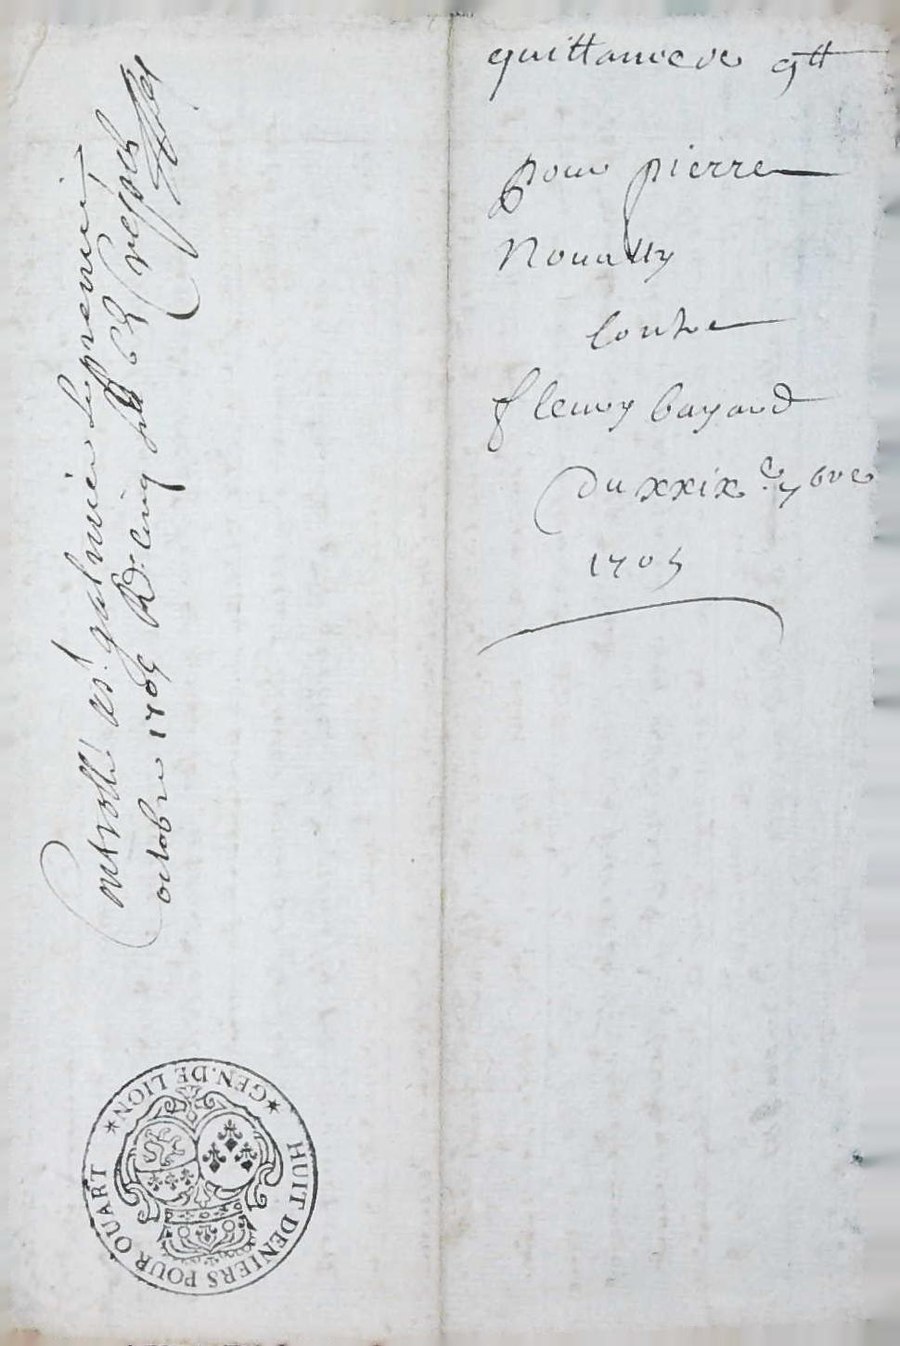 quittance de 9tt
pour pierre
Noually
contre
fleury bayard
du xxixe 7bre
1705
Controllé a St galmier le premier
octobre 1705 Rd cinq sols
GEN. DE LION
HUIT DENIERS POUR QUART